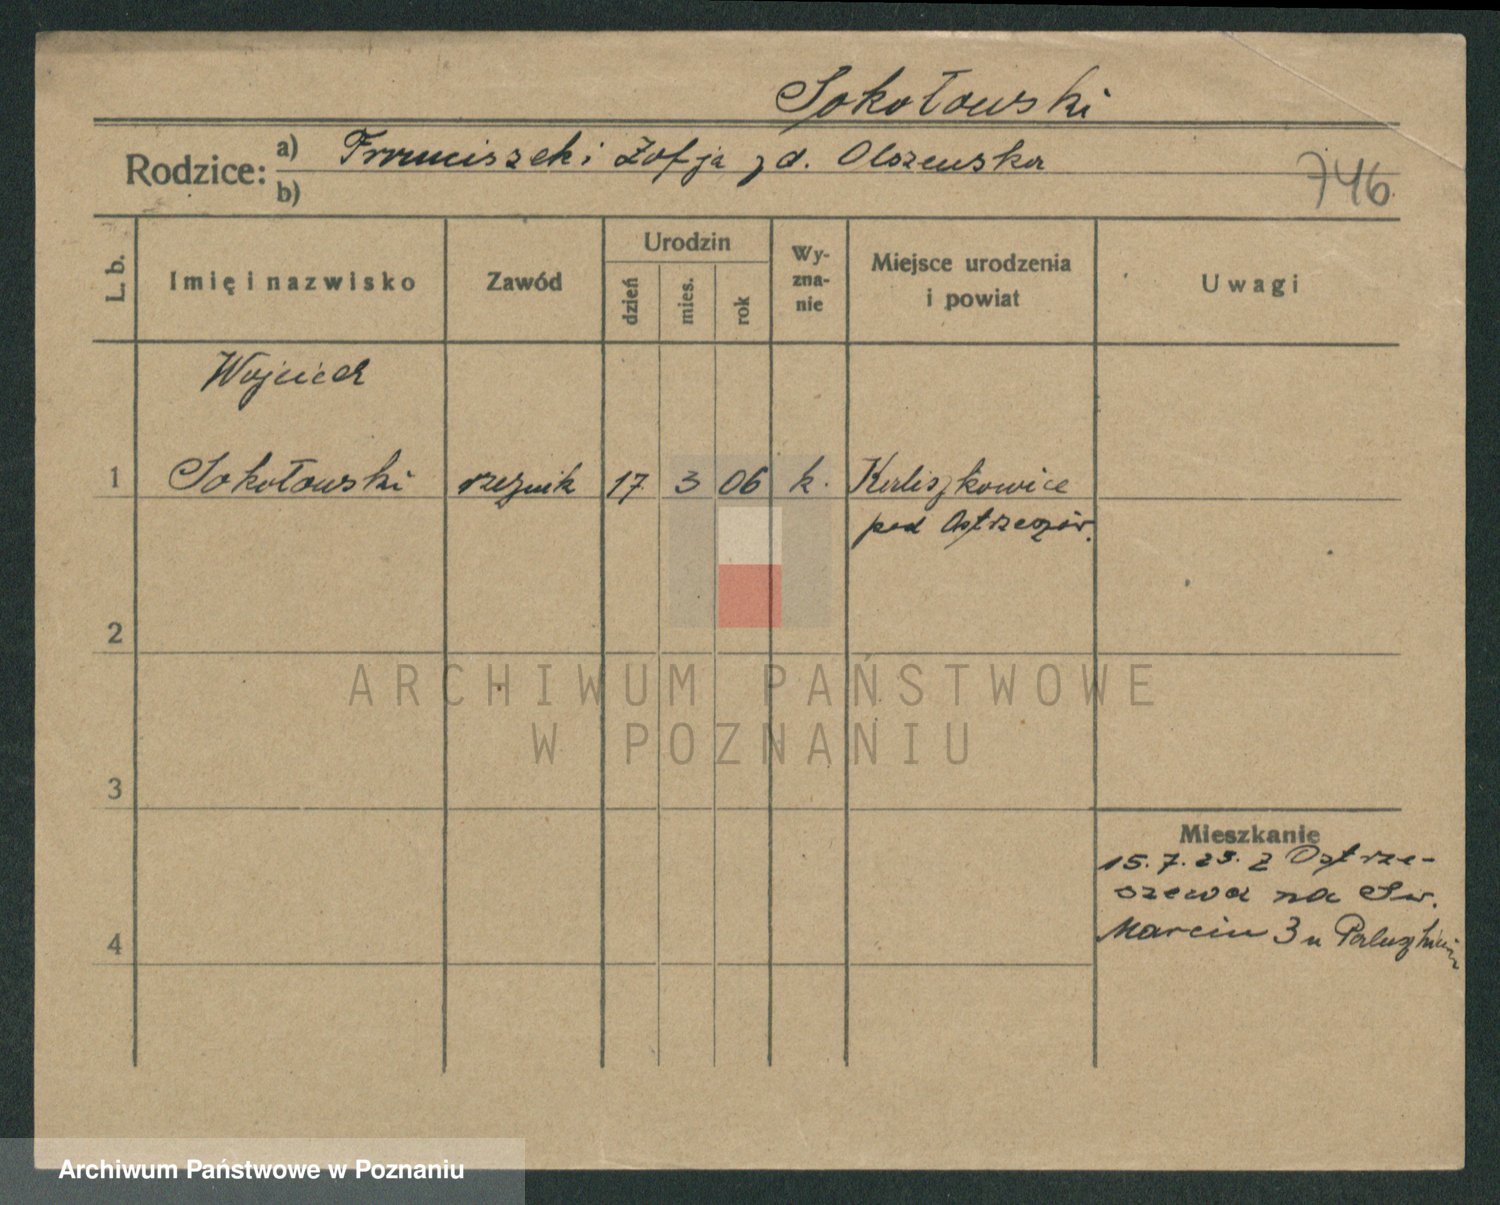 Sokołowski
Rodzice: a) Franciszek i Zofja z d. Olszewska
b)
746
L. b. Imię i nazwisko Zawód Urodzin dzień mies. rok Wy-zna-nie Miejsce urodzenia i powiat Uwagi
Wojciech
1 Sokołowski rzeźnik 17 3 06 k. Kaliszkowice
pod Ostrzeszów.
2
ARCHIWUM PAŃSTWOWE
W POZNANIU
3
Mieszkanie
15.7.23. z Ostrze-
szewa na Św.
4 Marcin 3 u
Archiwum Państwowe w Poznaniu